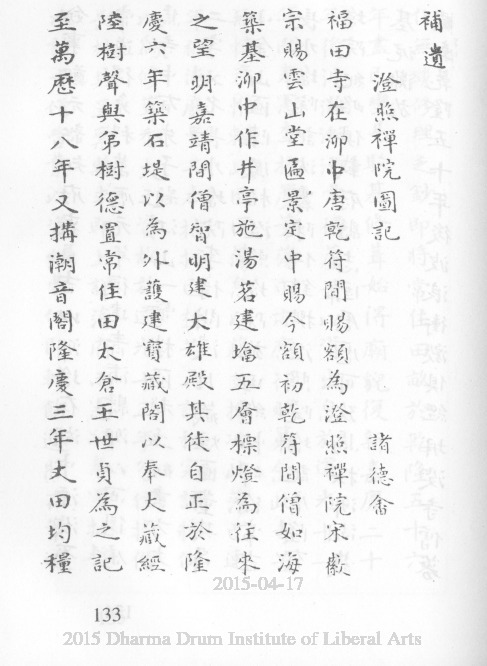 補遺
澄照禪院圖記
諸德畬
福田寺在泖中唐乾符間賜額為澄照禪院宋徽
宗賜雲山堂匾景定中賜今額初乾符間僧如海
築基泖中作井亭施湯茗建墖五層標燈為往來
之望明嘉靖間僧智明建大雄殿其徒自正於隆
慶六年築石堤以為外護建寶藏閣以奉大藏經
陸樹聲與弟樹德置常住田太倉王世貞為之記
至萬曆十八年又搆潮音閣隆慶三年丈田均糧
2015-04-17
133
2015 Dharma Drum Institute of Liberal Arts